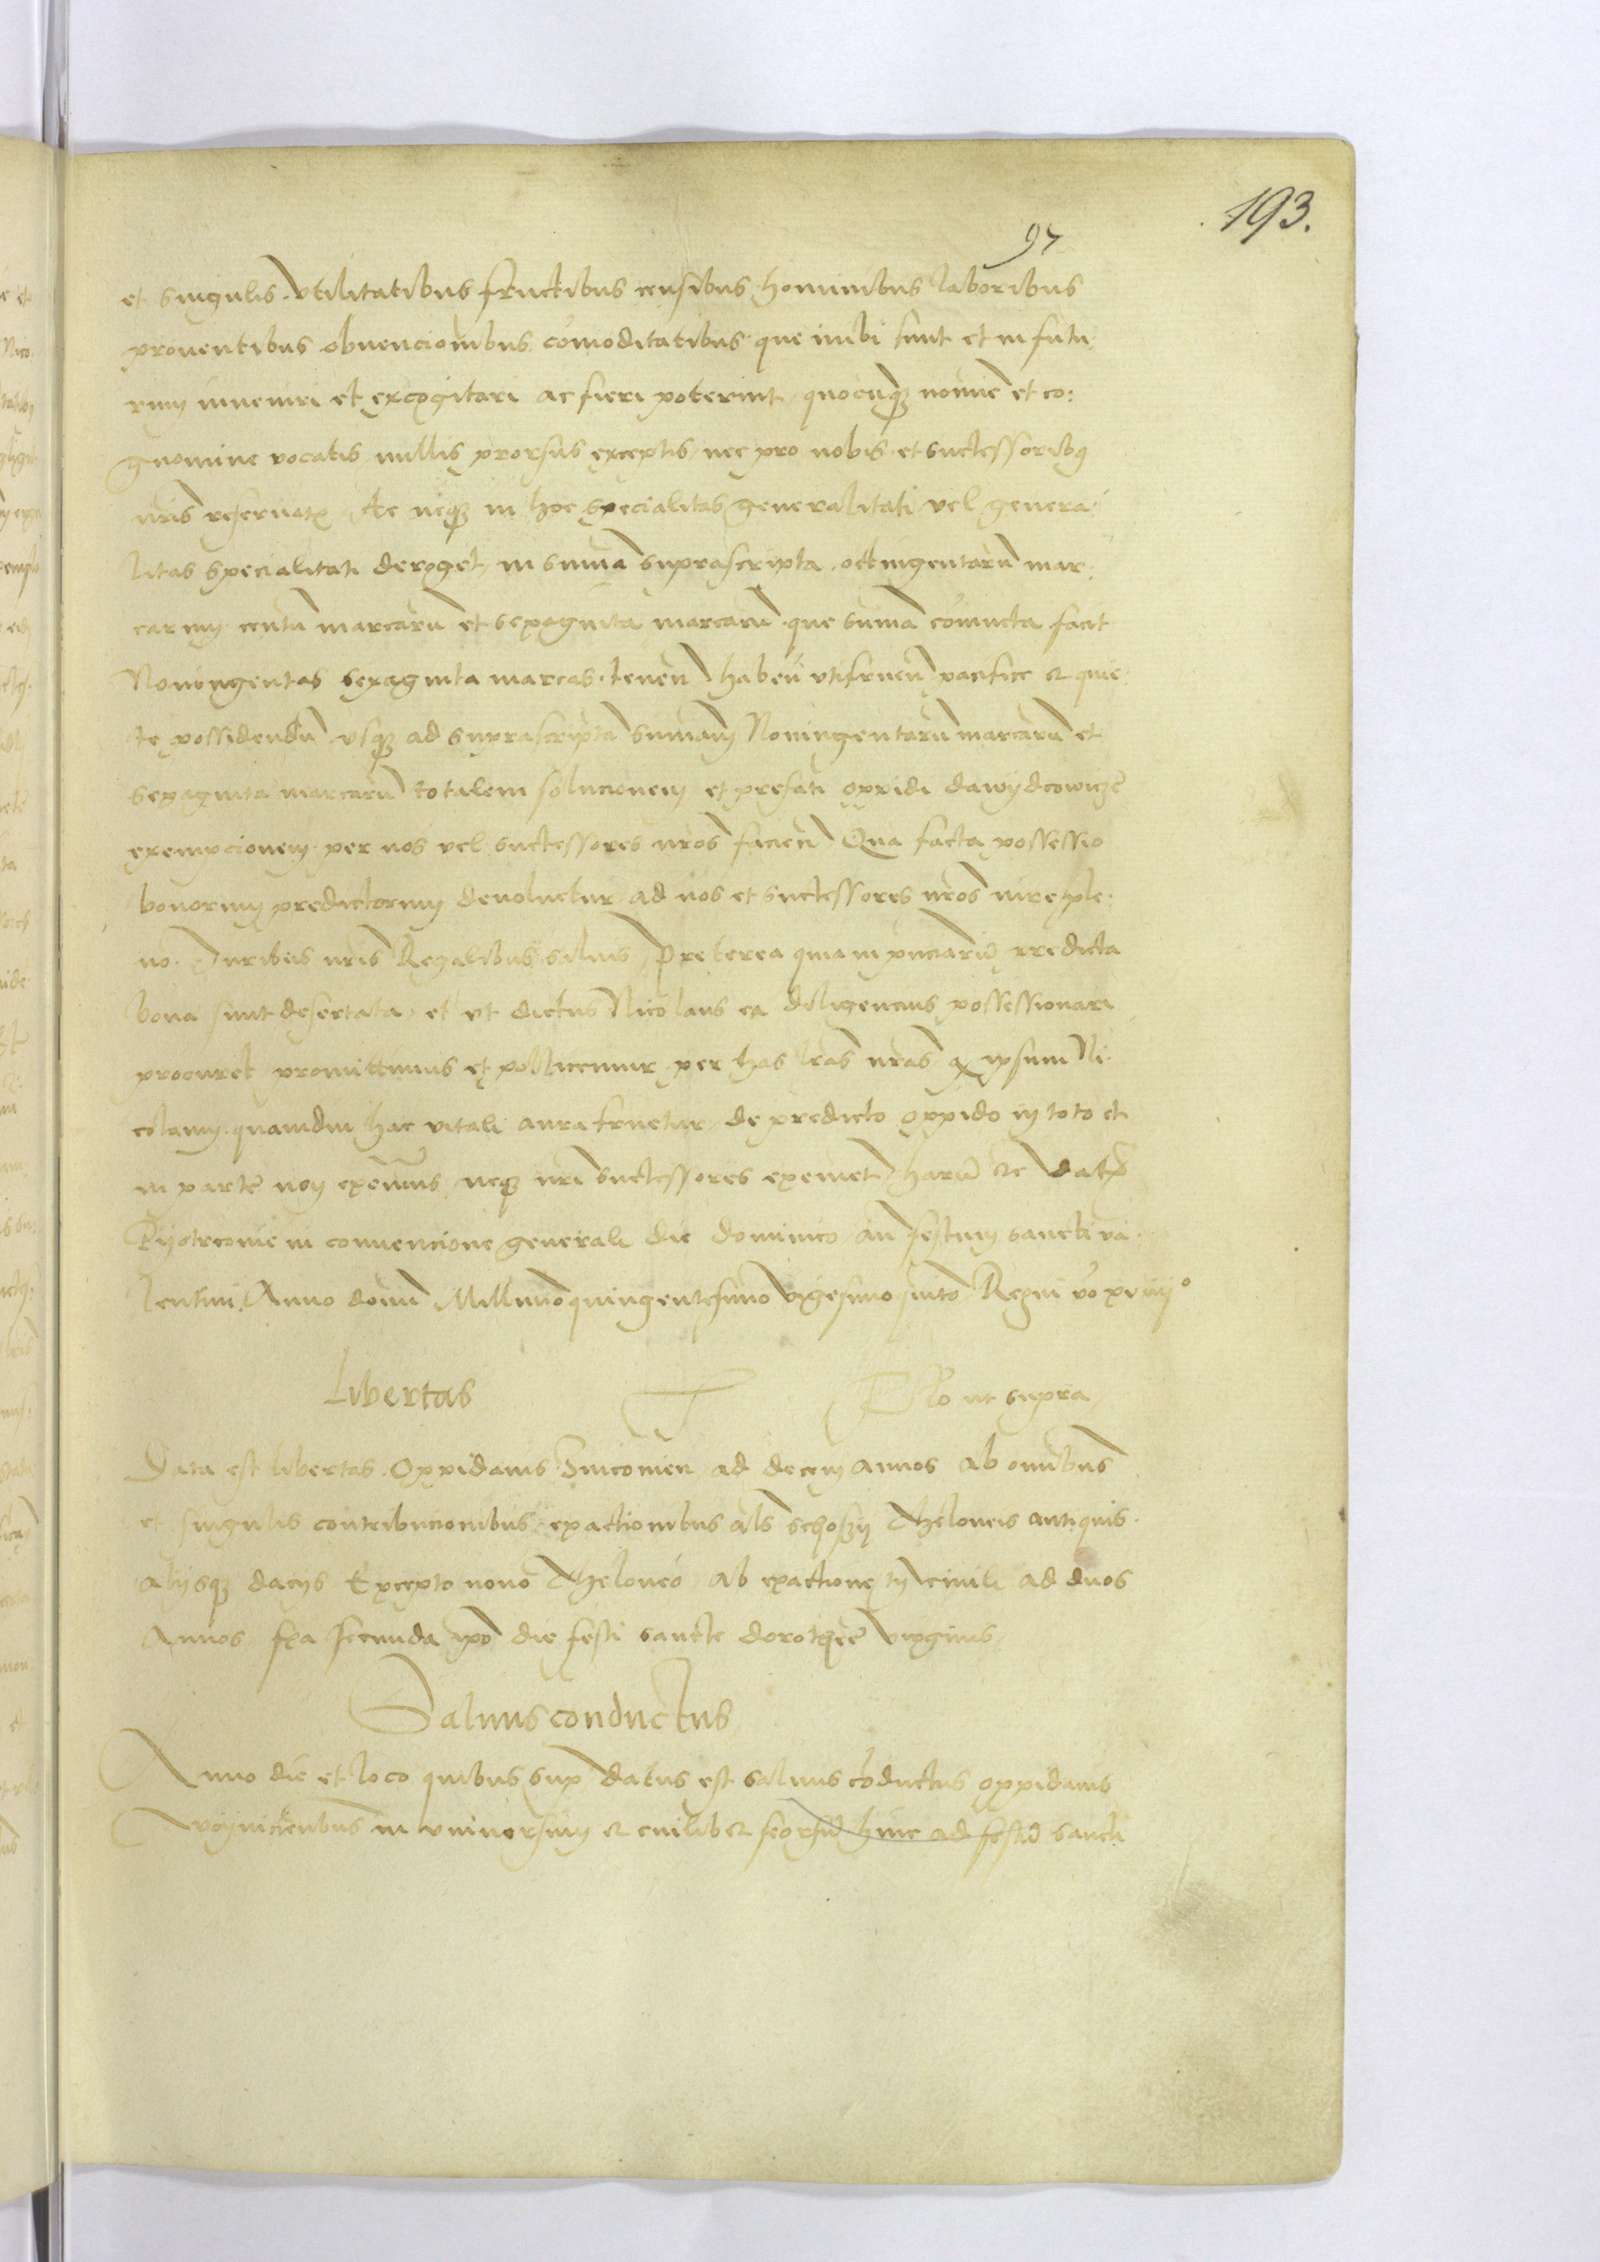 193.
97
et singulis utilitatibus fructibus censibus hominibus laboribus
proventibus obvencionibus comoditatibus que inibi sunt et in futu
rum inveniri et excogitari ac fieri poterint quocunq nomine et co:
gnomine vocatis nullis prorsus exceptis nec pro nobis et successoribus
nris reservatis Ac neq in hoc specialitas generalitati vel genera
litas specialitati deroget in suma suprascripta octingentarum mar
carum centu marcaru et sexaginta marcaru que suma coniuncta facit
Noningentas sexaginta marcas tenen haben utifruen pacifice et quie
te possidendu usq ad suprascripta sumam Noningentaru marcaru et
sexaginta marcaru totalem solucionem et prefati opidi dawydcowicze
exempcionem per nos vel successores nros faciend Qua facta possessio
bonorum predictorum devolvetur ad nos et successores nros iure ple
no Juribus nris Regalibus salvis Preterea quia in predicta
bona sunt desertata et ut dictus Nicolaus ea diligencius possessionari
procuret promittimus et pollicemur per has lras nras q ipsum Ni
colaum quamdiu hac vitali aura fruetur de predicto oppido in toto et
in parte non eximemus neq nri successores eximent harum etc Dat
Pyotrcovie in convencione generali die dominico an festum sancti va
lentini Anno domi Millimo quingentesimo vigesimo Regni vo
Libertas
Rlo ut supra
Data est libertas Oppidanis ad decem annos ab omnibus
et singulis contribucionibus exactionibus als schoszy Theloneis antiquis
alysq dacys Excepto novo Theloneo ab exactione civili ad duos
Annos fia secunda ipo die festi sancte dorothee virginis
Salvus conductus
Anno die et loco quibus sup datus est salvus coductus oppidanis
in universum et cuilibet seorsu hinc ad festu sancti